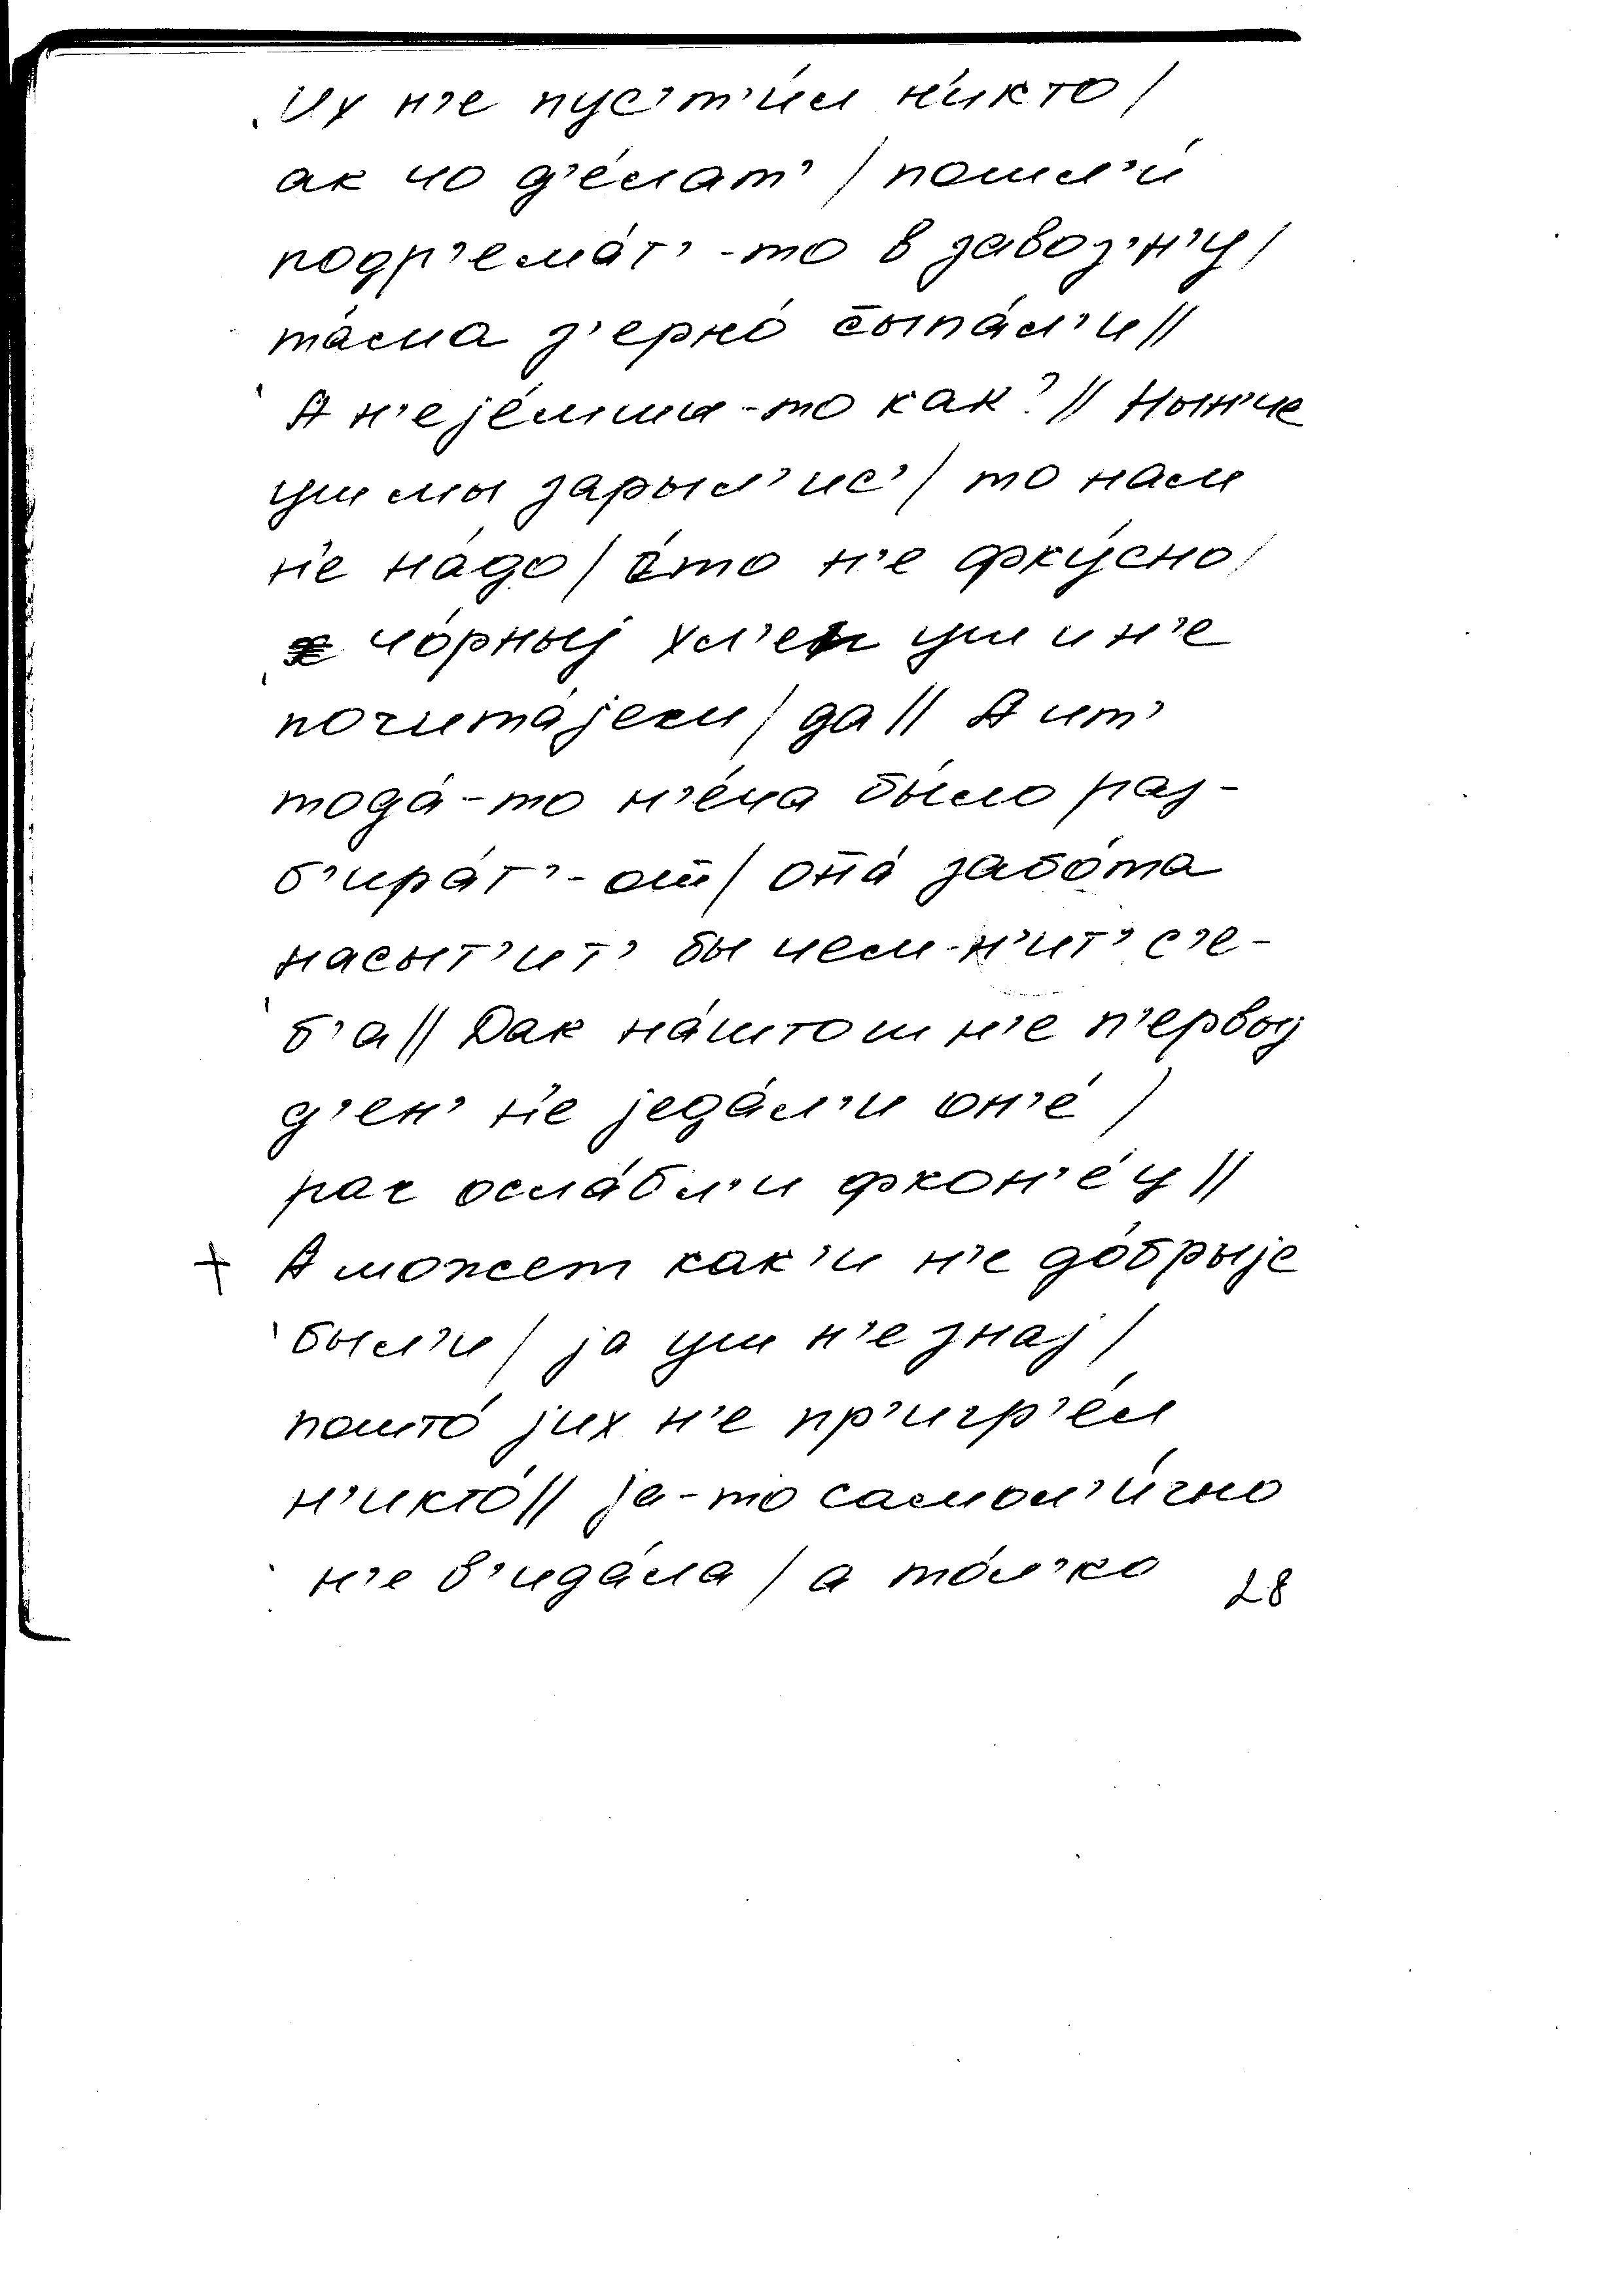 Их н'е пус'т'и́л н'икто /
ак чо д'е́лат' / пошл'и́
подр'ема́т'-то в завоз'н'у /
та́ма з'ерно́ сыпа́л'и //
А н'е је́мши-то как? // Нын'че
уш мы зарыл'ис' / то нам
н'е на́до / э́то н'е фку́сно /
чо́рныј хл'еп уш и н'е
почита́јем / да // А ит'
тода́-то н'е́ча бы́ло раз-
б'ира́т'-от / одна́ забо́та
насыт'ит' бы чем-н'ит' с'е-
б'а // Дак на́штош н'е п'ервыј
д'ен' н'е једа́л'и он'е́ /
рас осла́бл'и фкон'е́ц //
+ А может как'и н'е до́брыје
был'и / ја уш н'е знај /
пошто́ јих н'е пр'игр'е́л
н'икто́ // ја-то самол'и́чно
н'е в'ида́ла / а то́л'ко
28